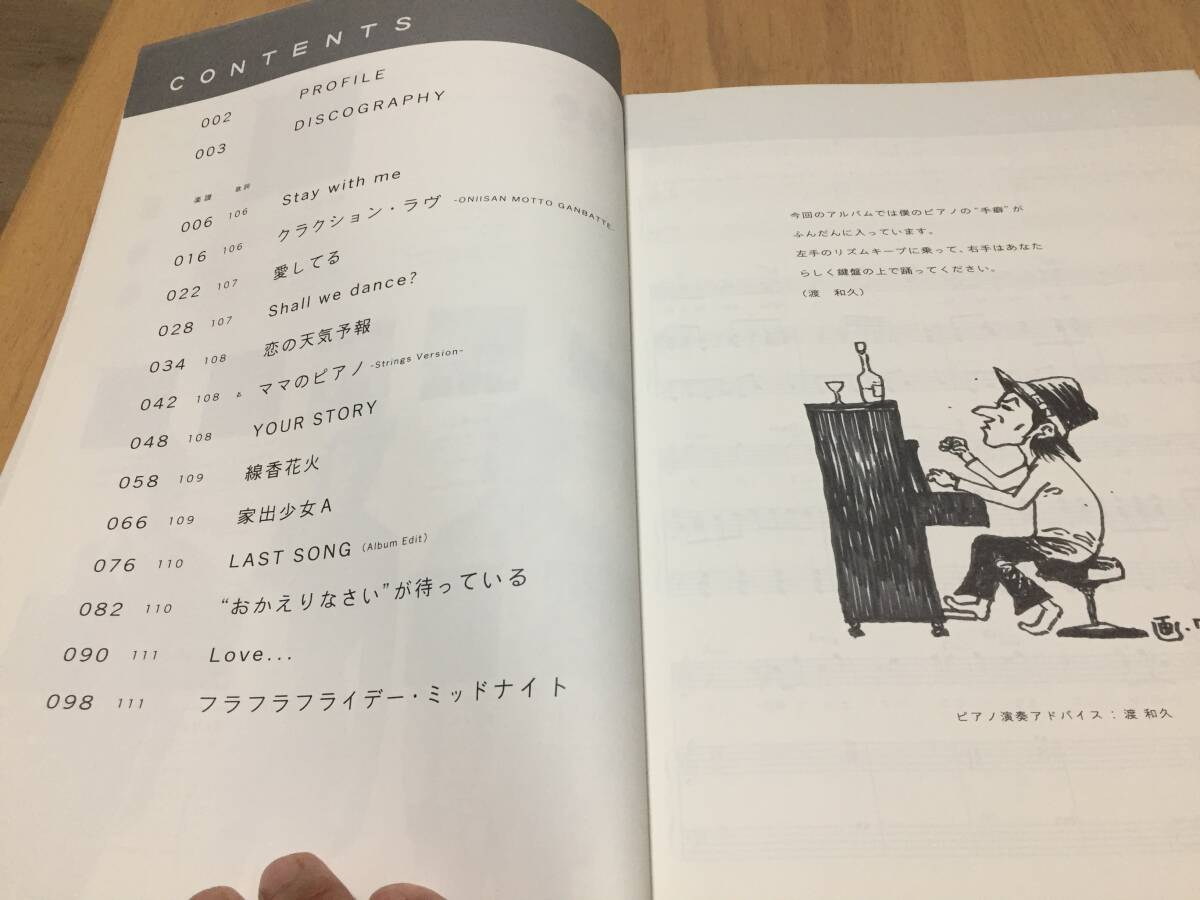 CONTENTS
002 PROFILE
003 DISCOGRAPHY
楽譜 歌詞
006 106 Stay with me
016 106 クラクション・ラヴ -ONIISAN MOTTO GANBATTE-
022 107 愛してる
028 107 Shall we dance?
034 108 恋の天気予報
042 108 ママのピアノ -Strings Version-
048 108 YOUR STORY
058 109 線香花火
066 109 家出少女A
076 110 LAST SONG (Album Edit)
082 110 “おかえりなさい”が待っている
090 111 Love...
098 111 フラフラフライデー・ミッドナイト
今回のアルバムでは僕のピアノの“手癖”が
ふんだんに入っています。
左手のリズムキープに乗って、右手はあなた
らしく鍵盤の上で踊ってください。
（渡 和久）
画.
ピアノ演奏アドバイス：渡 和久